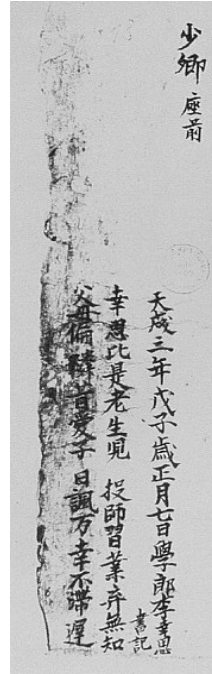 少卿 座前
天成三年戊子歲正月七日學郎李幸思
書記
幸思比是老生兒 投師習業弃無知
父母偏憐昔愛子 日諷万幸不滞遅